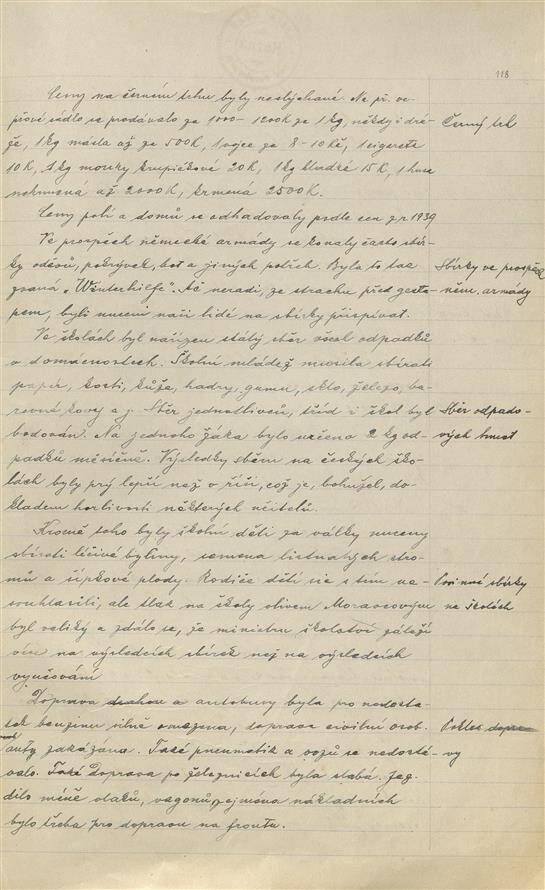 118
Ceny na černém trhu byly neslýchané. Na př. ve-
přové sádlo se prodávalo za 1000 - 1200 K za 1 kg, někdy i drá-
Černý trh
že, 1 kg másla až za 500 K, 1 vejce za 8 - 10 Kč, 1 cigareta
10 K, 1 kg mouky krupičkové 20 K, 1 kg hladké 15 K, 1 husa
nekrmená až 2000 K, krmená 2500 K.
Ceny polí a domů se odhadovaly podle cen z r. 1939
Ve prospěch německé armády se konaly často sbír-
ky oděvů, pokrývek, bot a jiných potřeb. Byla to tak
Sbírky ve prospěch
zvaná „Winterhilfe“. Ač neradi, ze strachu před gesta-
něm. armády
pem, byli nuceni naši lidé na sbírky přispívat.
Ve školách byl nařízen stálý sběr všech odpadků
v domácnostech. Školní mládež musila sbírati
papír, kosti, kůže, hadry, gumu, sklo, železo, ba-
revné kovy a j. Sběr jednotlivců, tříd i škol byl
Sběr odpado-
bodován. Na jednoho žáka bylo určeno 2 kg od-
vých hmot
padků měsíčně. Výsledky sběru na českých ško-
lách byly prý lepší než v říši, což je, bohužel, do-
kladem horlivosti některých učitelů.
Kromě toho byly školní děti za války nuceny
sbírati léčivé byliny, semena listnatých stro-
mů a šípkové plody. Rodiče dětí sic s tím ne-
Povinné sbírky
souhlasili, ale tlak na školy vlivem Moravcovým
na školách
byl veliký a zdálo se, že ministru školství záleží
víc na výsledcích sbírek než na výsledcích
vyučování
Doprava drahou a autobusy byla pro nedosta-
tek benzinu silně omezena, doprava civilní osob.
Pokles dopra-
auty zakázána. Také pneumatik a vozů se nedostá-
vy
valo. Také Doprava po železnicích byla slabá. Jez-
dilo méně vlaků, vagonů, zejména nákladních
bylo třeba pro dopravu na frontu.